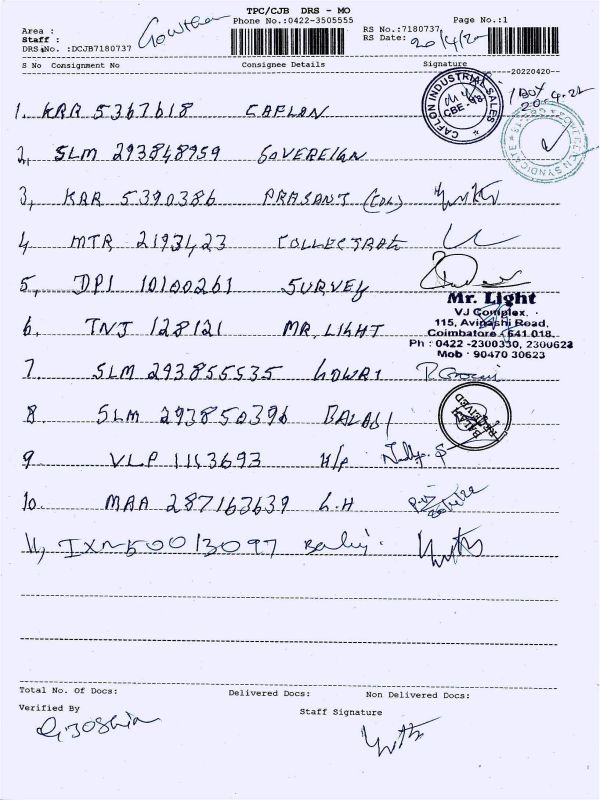 TPC/CJB DRS - MO
Phone No.:0422-3505555
Page No.:1
Area :
Staff : Gowtham
DRS No. :DCJB7180737
RS No.:7180737
RS Date: 20/4/22
S No Consignment No Consignee Details Signature
20220420
1 BOX
20.4.22
CAFLON INDUSTRIAL SALES
1. KRR 5367618 CAFLON
2, SLM 293848959 SOVEREIGN
3, KAR 5390386 PRASANT (COL)
4 MTR 2193423 COLLECTRATE
5, DPI 10100261 SURVEY
Mr. Light
VJ Complex,
115, Avinashi Road,
Coimbatore - 641 018.
Ph : 0422 -2300330, 2300623
Mob : 90470 30623
6. TNJ 128121 MR. LIGHT
7. SLM 293855535 GOWRI
8 SLM 293850396 BALAJI
RECEIVED
9 VLP 1153693 H/P
10. MAA 287163639 L.H
11, IXM50013097
Total No. Of Docs: Delivered Docs: Non Delivered Docs:
Verified By
Staff Signature